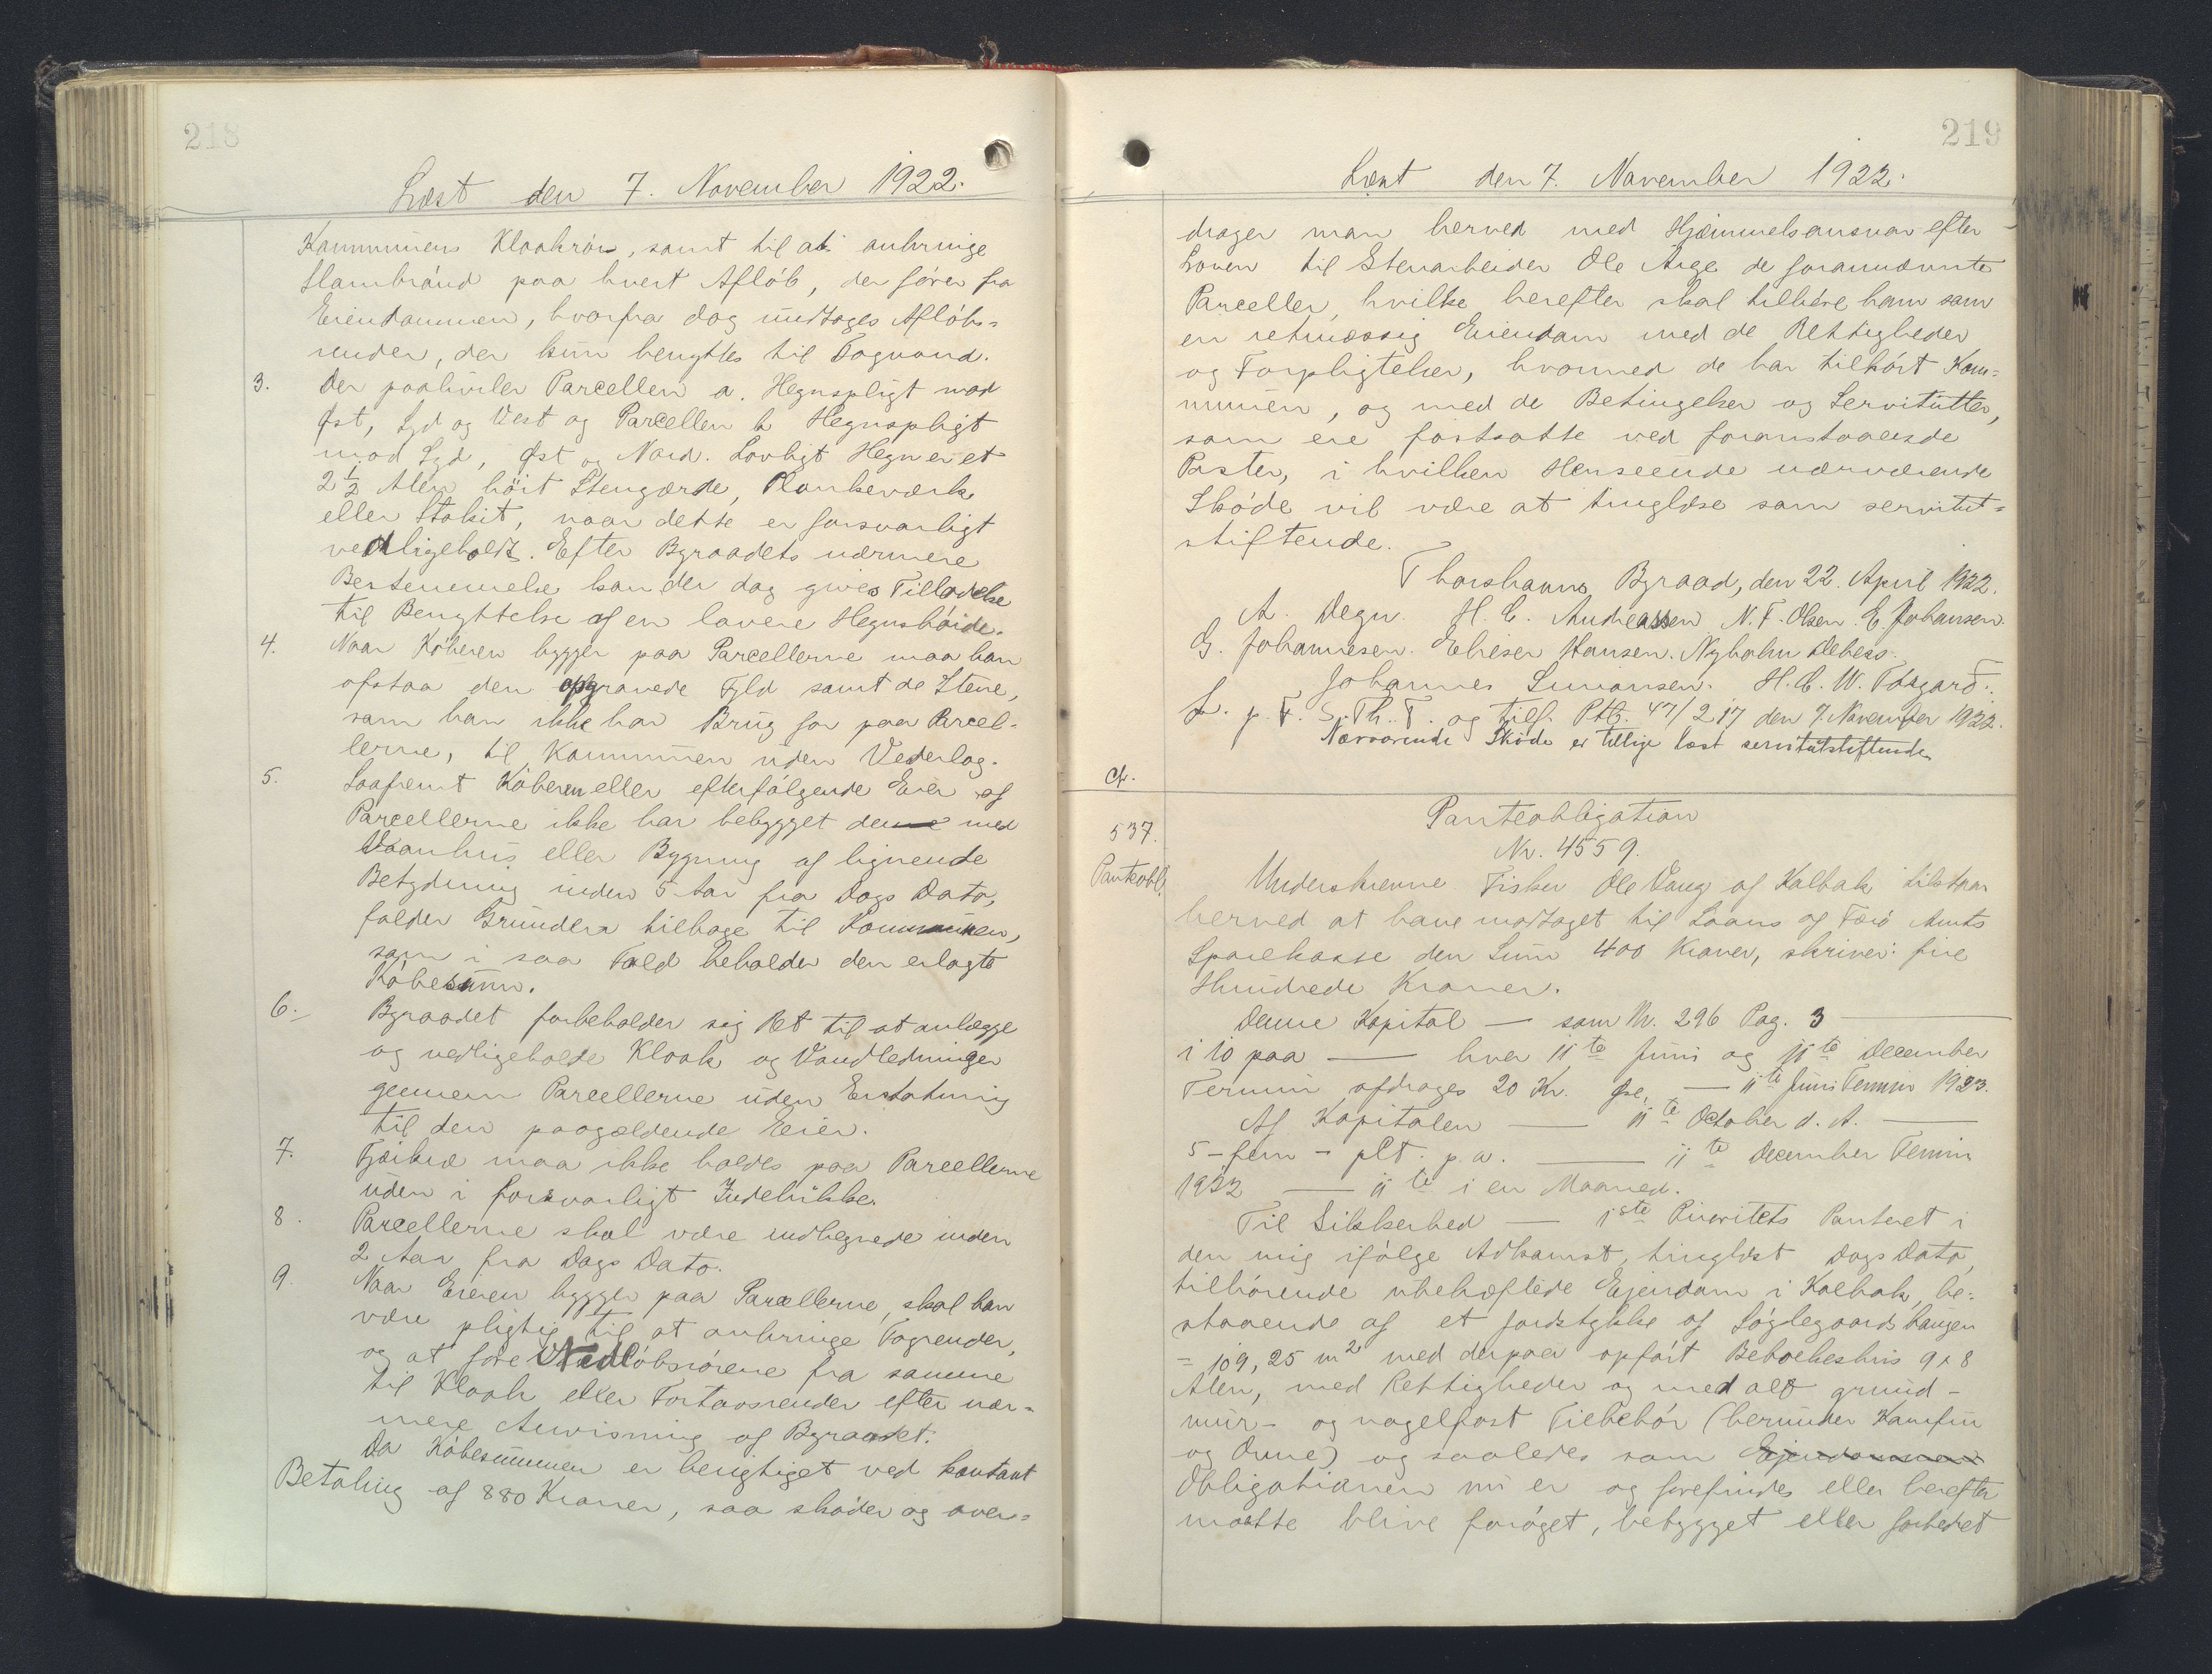 218
Læst den 7. November 1922.
Kommunens Kloakrør, samt til at anbringe
Slambrønd paa hvert Afløb, der fører fra
Eiendommen, hvorfra dog undtages Afløbs=
render, der kun benyttes til Tagvand.
3. Der paahviler Parcellen a. Hegnspligt mod
Øst, Syd og Vest og Parcellen b Hegnspligt
mod Syd, Øst og Nord. Lovligt Hegn er et
2 1/2 Alen höit Stengærde, Plankeværk
eller Stakit, naar dette er forsvarligt
vedligeholdt. Efter Byraadets nærmere
Bestemmelse kan der dog gives Tilladelse
til Benyttelse af en lavere Hegnshøide.
4. Naar Køberen bygger paa Parcellerne maa han
afstaa den opgravede Fyld samt de Stene,
som han ikke har Brug for paa Parcel-
lerne, til Kommunen uden Vederlag.
5. Saafremt Køberen eller efterfølgende Eier af
Parcellerne ikke har bebygget dem med
Vaanhus eller Bygning af lignende
Betydning inden 5 Aar fra Dags Dato,
falder Grunden tilbage til Kommunen,
som i saa Fald beholder den erlagte
Købesum.
6. Byraadet forbeholder sig Ret til at anlægge
og vedligeholde Kloak og Vandledninger
gennem Parcellerne uden Erstatning
til den paagældende Eier.
7. Fjerkræ maa ikke holdes paa Parcellerne
uden i forsvarligt Indelukke.
8. Parcellerne skal være indhegnede inden
2 Aar fra Dags Dato.
9. Naar Eieren bygger paa Parcellerne, skal han
være pligtig til at anbringe Tagrender,
og at føre Nedløbsrørene fra samme
til Kloak eller Fortovsrender efter nær=
mere Anvisning af Byraadet.
Da Købesummen er berigtiget ved kontant
Betaling af 880 Kroner, saa skøder og over=
219
Læst den 7. November 1922.
drager man herved med Hjemmelsansvar efter
Loven til Stenarbeider Ole Arge de forannævnte
Parceller, hvilke herefter skal tilhøre ham som
en retmæssig Eiendom med de Rettigheder
og Forpligtelser, hvormed de har tilhørt Kom=
munen, og med de Betingelser og Servitutter,
som ere fastsatte ved foranstaaende
Poster, i hvilken Henseende nærværende
Skøde vil være at tinglæse som servitut=
stiftende.
Thorshavns Byraad, den 22. April 1922.
A. Degn. H. C. Andreassen N. F. Olsen. E. Johansen.
G. Johannesen. Elieser Hansen. Nyholm Debess.
Johannes Simonsen. H. C. W. Tórgarð.
L. p. F. S. Th. T. og tilf. Ptb. 47/217 den 7. November 1922.
Nærværende Skøde er tillige læst servitutstiftende
Cf.
Panteobligation
537.
Nr. 4559.
Panteobl.
Underskrevne Fisker Ole Vang af Kalbak tilstaar
herved at have modtaget til Laans af Færø Amts
Sparekasse den Sum 400 Kroner, skriver: fire
Hundrede Kroner.
Denne Kapital — som Nr. 296 Pag. 3 —
i 10 paa — hver 11te Juni og 11te December
Termin afdrages 20 Kr. — 11te Juni Termin 1923.
Af Kapitalen — 11te October d. A. —
5 - fem - pCt. p. a. — 11te December Termin
1922 — 11te i en Maaned.
Til Sikkerhed — 1ste Prioritets Panteret i
den mig ifølge Adkomst, tinglæst Dags Dato,
tilhørende ubehæftede Ejendom i Kalbak, be=
staaende af et Jordstykke af Løgdegaards haugen
= 109,25 m2 med derpaa opført Beboelseshus 9 x 8
Alen, med Rettigheder og med alt grund-
mur- og nagelfast Tilbehør (herunder Komfur
og Ovne) og saaledes som Ejendommen
Obligationen nu er og forefindes eller herefter
maatte blive forøget, bebygget eller forbedret